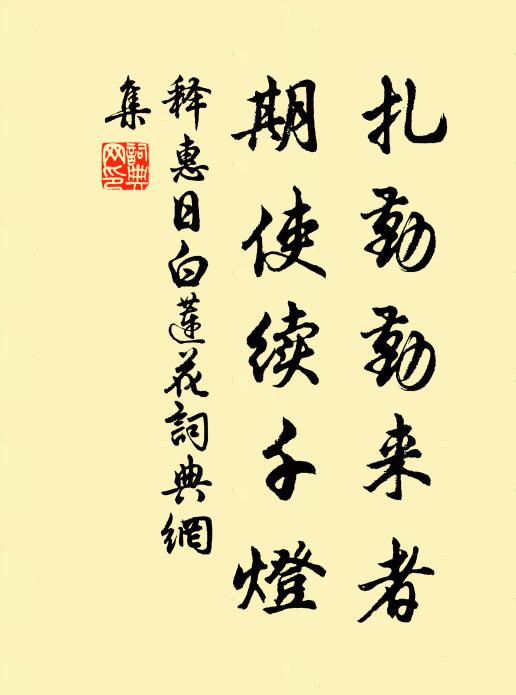 扎勤勤来者
期使续千燈
释惠日白莲花詞典網
集
詞典
网印